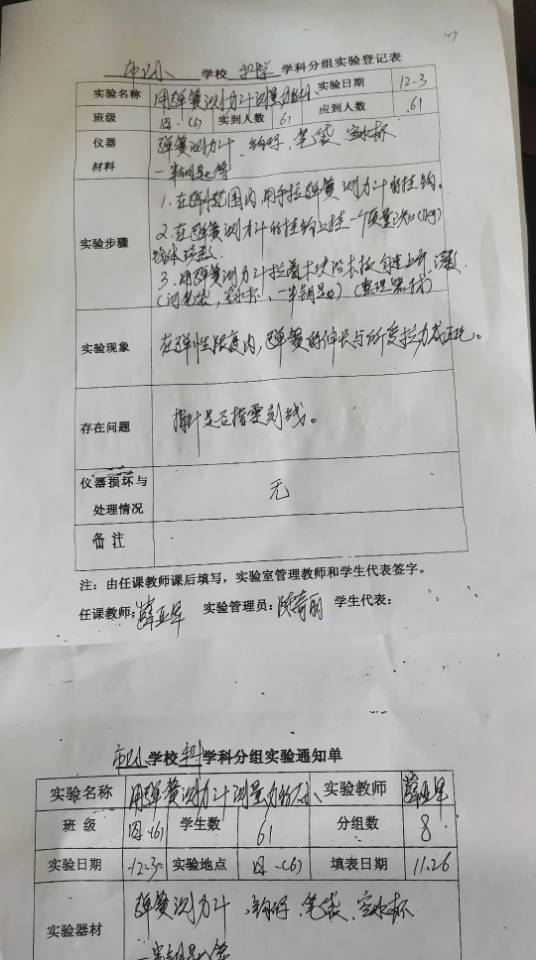 学校 科学 学科分组实验登记表
实验名称 用弹簧测力计测量力的大小 实验日期 12-3
班级 四.(6) 实到人数 61 应到人数 61
仪器材料 弹簧测力计、钩码、笔袋、空水杯
一串钥匙等
实验步骤 1.在弹性范围内用手拉弹簧测力计的挂钩。
2.在弹簧测力计的挂钩上挂一个质量
物体读数.
3.用弹簧测力计拉着木块沿木板匀速上升,读数
(测笔袋,空水杯,一串钥匙)(整理器材)
实验现象 在弹性限度内,弹簧的伸长与所受拉力成正比。
存在问题 指针是否指零刻线。
仪器损坏与处理情况 无
备注
注:由任课教师课后填写,实验室管理教师和学生代表签字。
任课教师:薛亚军 实验管理员: 学生代表:
学校 科 学科分组实验通知单
实验名称 用弹簧测力计测量力的大小 实验教师 薛亚军
班级 四.(6) 学生数 61 分组数 8
实验日期 12-3 实验地点 四.(6) 填表日期 11.26
实验器材 弹簧测力计、钩码、笔袋、空水杯
一串钥匙等